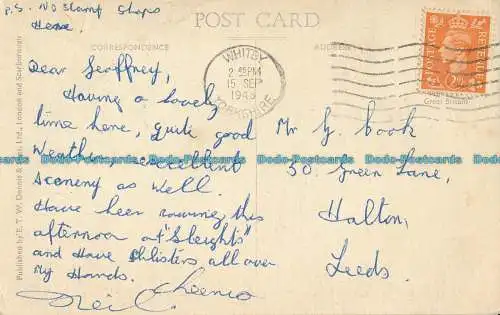 P.S. No Stamp Shops
Here.
POST CARD
CORRESPONDENCE
ADDRESS
WHITBY
2 45 PM
15 SEP
1949
YORKSHIRE
POSTAGE
REVENUE
Great Britain
Dear Geoffrey,
Having a lovely
time here, quite good
Weather, excellent
Scenery as Well.
Have been rowing this
afternoon at "Sleights"
and Have Blisters all over
My Hands.
Cheerio
Neil
Mr G. Cook
50 Green Lane,
Halton,
Leeds.
Published by E. T. W. Dennis & Sons, Ltd., London and Scarborough
Todo-Postcards Todo-Postcards Todo-Postcards Todo-Postcards